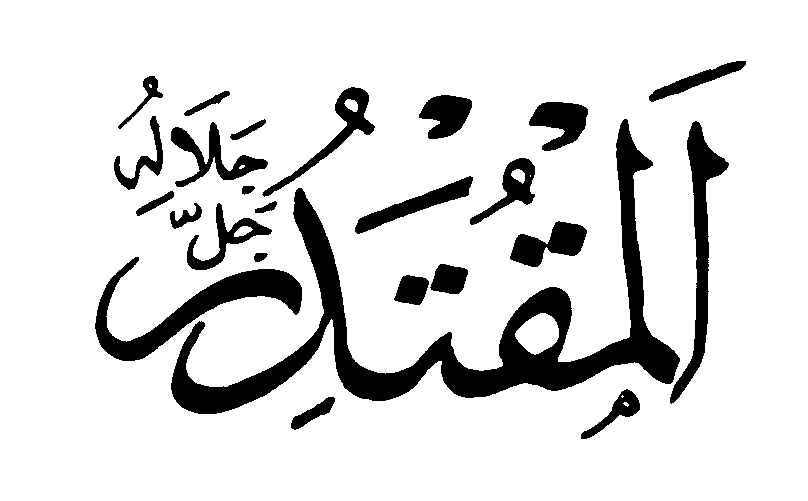 اَلْمُقْتَدِرُ
جَلَّ جَلَالُهُ